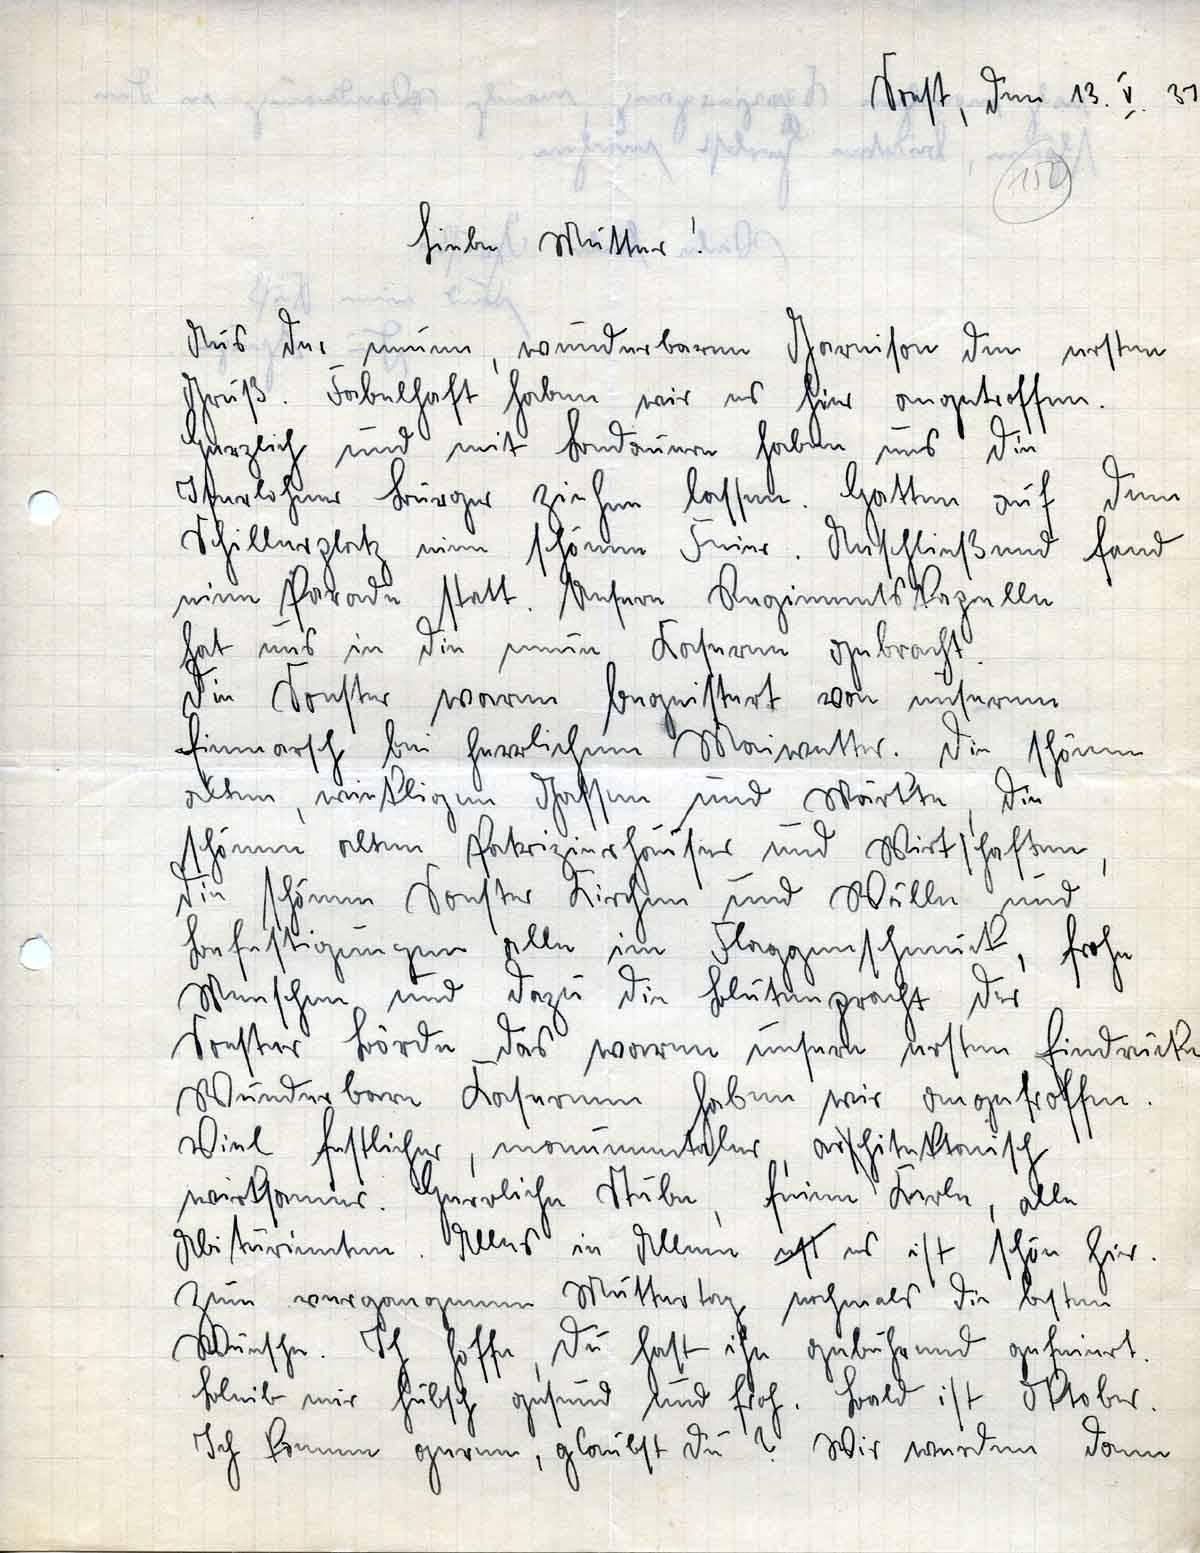 Soest, den 13. V. 37
152
Liebe Mutter!
Aus der neuen, wunderbaren Garnison den ersten
Gruß. Fabelhaft haben wir es hier angetroffen.
Herzlich und mit Bedauern haben uns die
Iserlohner Bürger ziehen lassen. Hatten auf dem
Schillerplatz eine schöne Feier. Anschließend fand
eine Parade statt. Unsere Regimentskapelle
hat uns in die neue Kaserne gebracht.
Die Soester waren begeistert von unserem
Einmarsch bei herrlichem Maiwetter. Die schönen
alten, winkligen Gassen und Märkte, die
schönen alten Patrizierhäuser und Wirtschaften,
die schönen Soester Kirchen und Wälle und
Befestigungen alle im Flaggenschmuck, frohe
Menschen und dazu die Blütenpracht der
Soester Börde das waren unsere ersten Eindrücke
Wunderbare Kasernen haben wir angetroffen.
Viel festlicher, monumentaler, architektonisch
wirksamer. Herrliche Stube, feine Kerle, alle
Abiturienten. Alles in Allem es ist schön hier.
Zum vergangenen Muttertag nochmals die besten
Wünsche. Ich hoffe, Du hast ihn gebührend gefeiert.
Bleib mir hübsch gesund und froh. Bald ist Oktober.
Ich komme gerne, glaubst Du? Wir werden dann